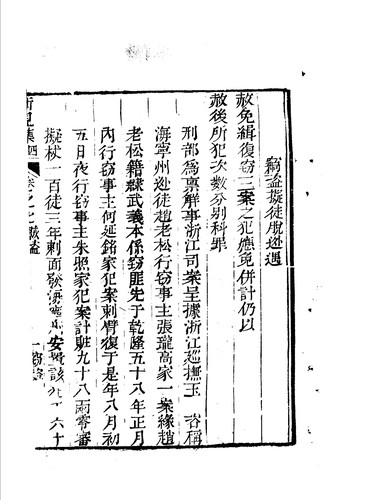 竊盜擬徒脫逃遇
赦免緝復竊三案之犯應免併計仍以
赦後所犯次數分別科罪
刑部爲稟解事浙江司案呈據浙江巡撫玉 咨稱
海寧州逃徒趙老松行竊事主張瓏高家一案緣趙
老松籍隸武義本係竊匪先于乾隆五十八年正月
內行竊事主何延銘家犯案刺臂復于是年八月初
五日夜行竊事主朱照家犯案計贓九十八兩零審
擬杖一百徒三年刺面發 安 該 六十
新見集四 卷之七 賊盜 一